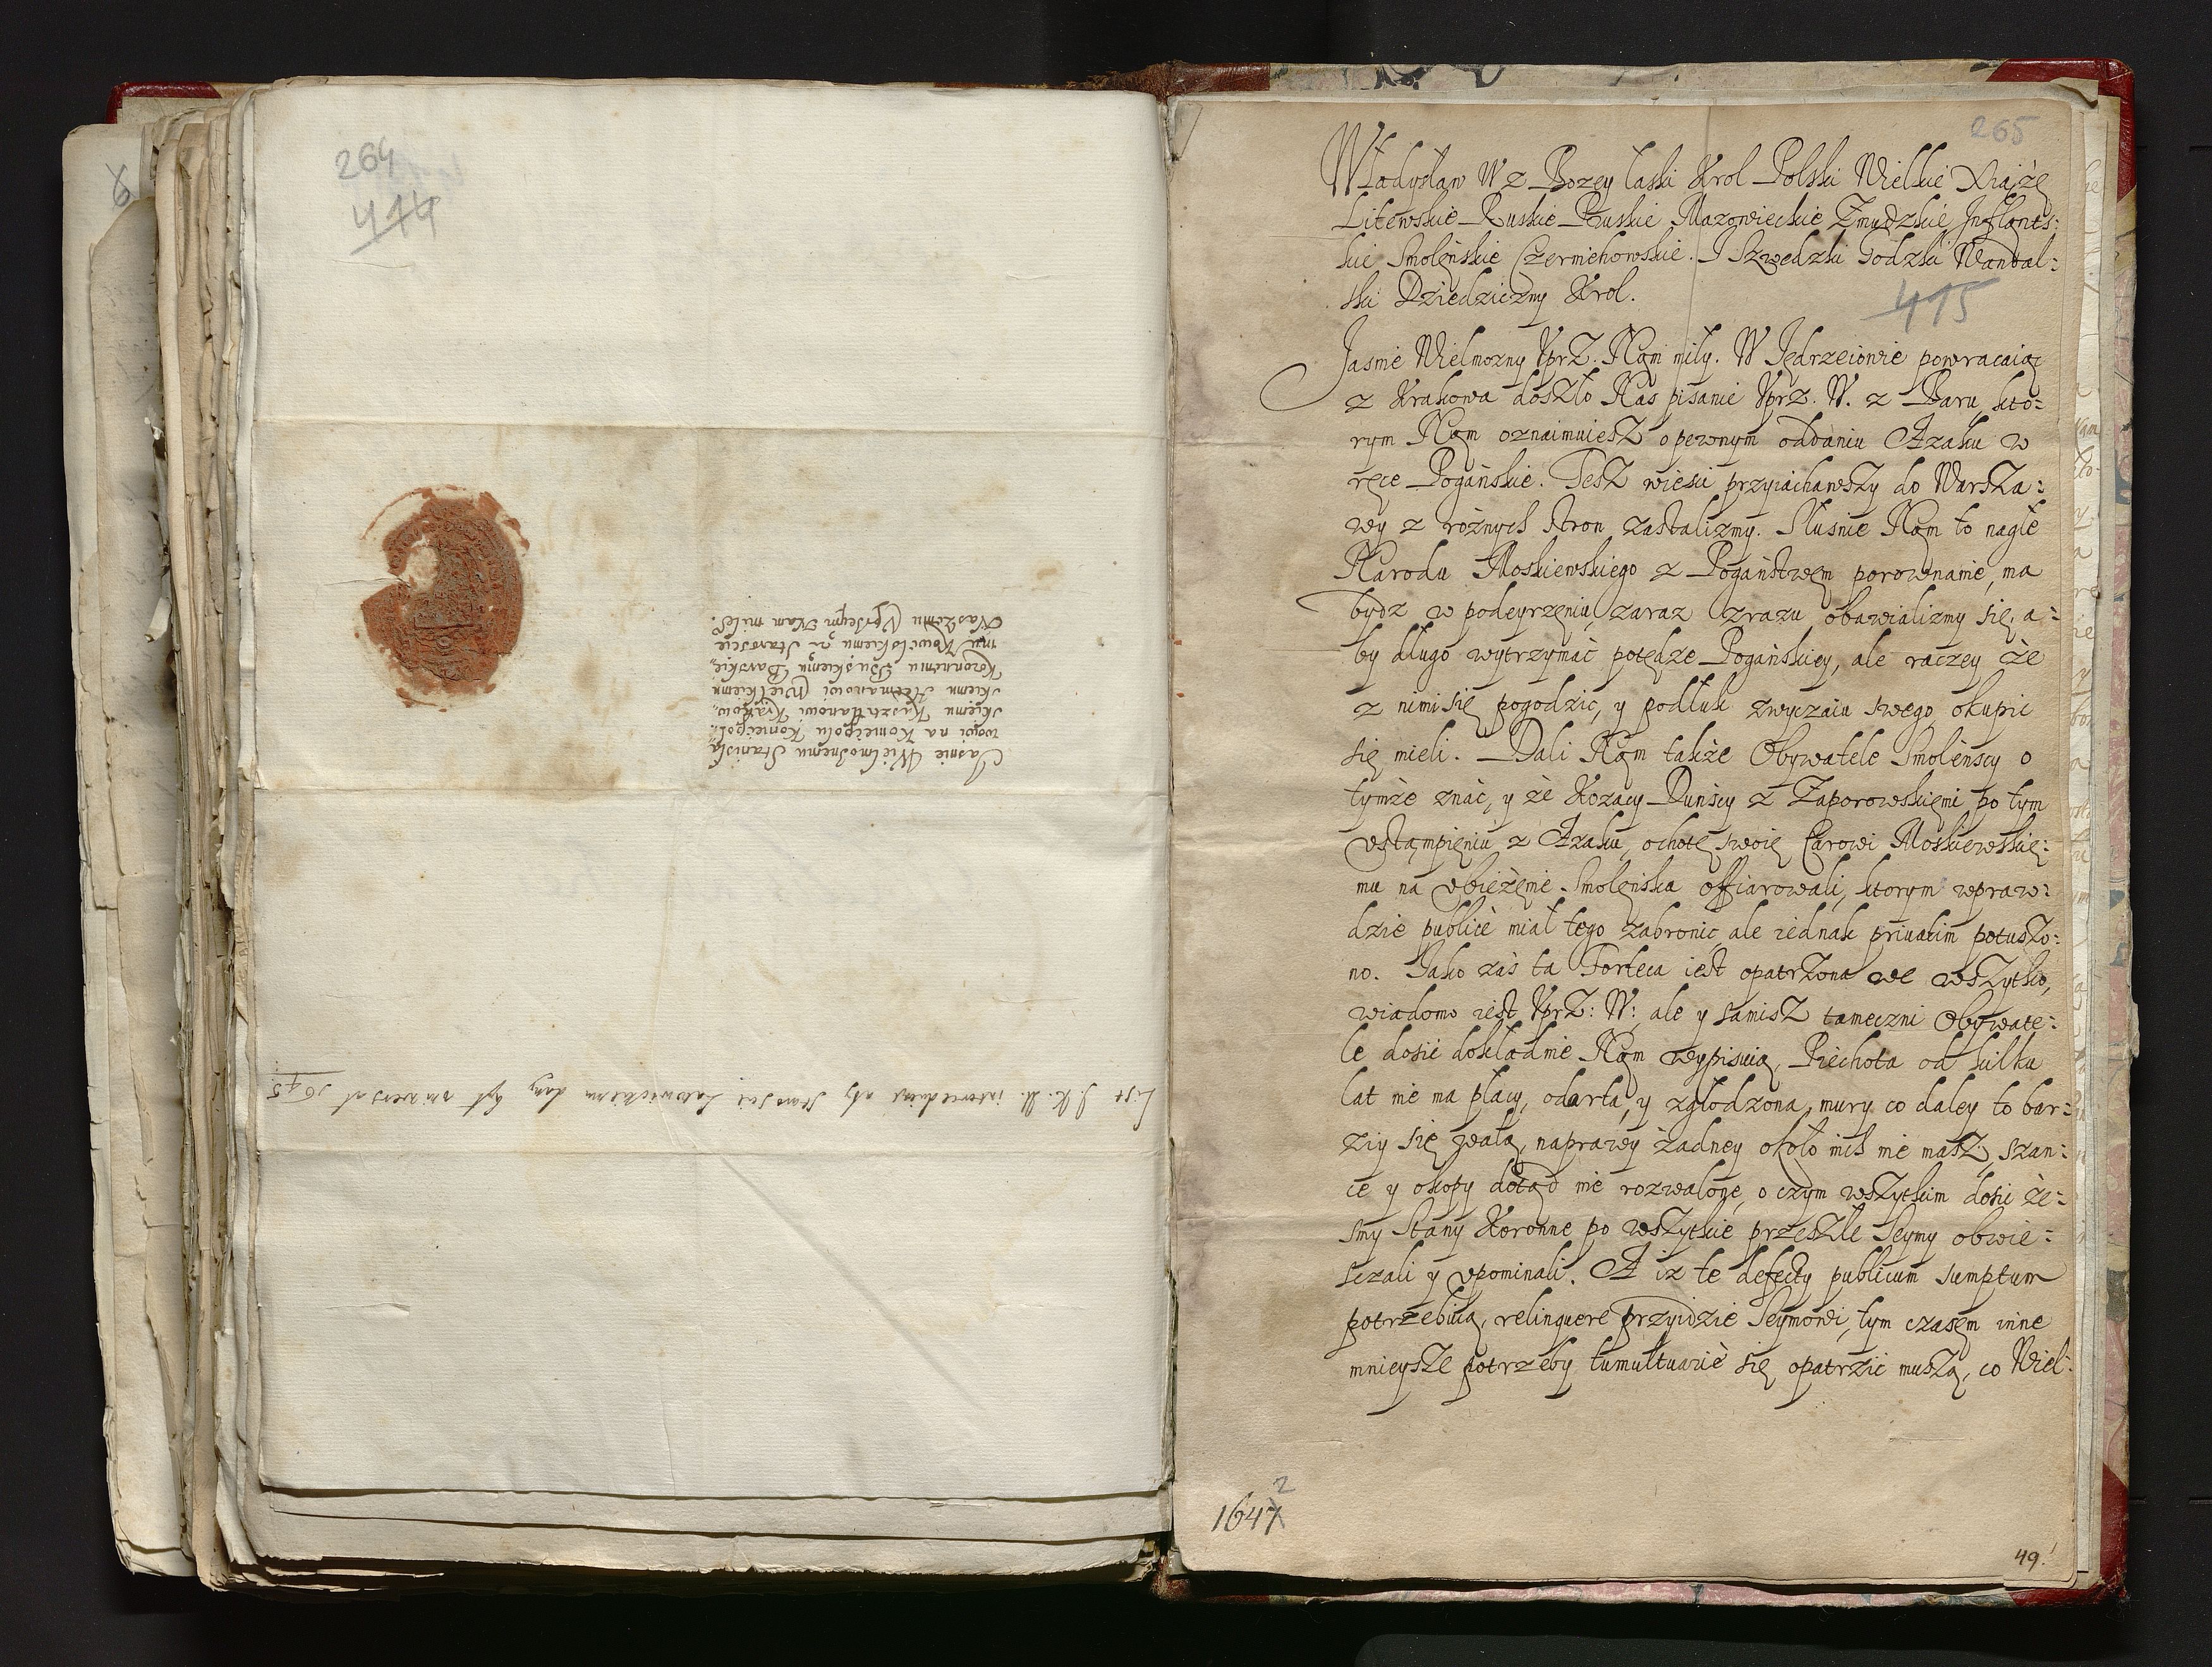 264
414
Jasnie Wielmożnemu Stanisła„
wowi na Koniecpolu Koniecpol„
skiemu Kasztellanowi Krakow„
skiemu Hetmanowi Wielkiemu
Koronnemu Buskiemu Barskie„
mu Kowelskiemu etc Staroscie
Naszemu Vprzeym Nam miłeo.
List J. K. M. aby Starosta dany był uniwersał 1645
265
Władysław IV z Bozey łaski Krol Polski Wielkie Xiąże
Litewskie Ruskie Pruskie Mazowieckie Zmudzkie Inflants:
kie Smolęnskie Czerniehowskie. I Szwedzki Godzki Wandal:
ski Dziedziczny Krol.
415
Jasnie Wielmozny Vprz. Nąm miły. W Jędrzeiowie powracaiąc
z Krakowa doszło Nas pisanie Vprz. W. z Baru, kto:
rym Nąm oznaimuiesz o pewnym oddaniu Azaku w
ręce Pogańskie. Tesz wiesci przyiachawszy do Warsza:
wy z rożnych stron zastalizmy. Słusnie Nąm to nagłe
Narodu Moskiewskiego z Pogaństwęm porownanie, ma
bydz w podeyrzeniu, zaraz zrazu obawializmy się, a:
by długo wytrzymać potędze Pogańskiey, ale raczey że
z nimi się pogodzić, y podłuk zwyczaiu swego okupić
się mieli. Dali Nąm także Obywatele Smoleńscy o
tymże znać, y że Kozacy Duńscy z Zaporowskięmi po tym
vstąmpięniu z Azaku, ochotę swoię Carowi Moskiewskię:
mu na vbieżęnie Smoleńska offiarowali, ktorym wpraw:
dzie publicè miał tego zabronić, ale iednak priuatim potuszo:
no. Jako zaś ta Forteca iest opatrzona we wszytko,
wiadomo iest Vprz: W:, ale y samisz tameczni Obywate:
le dosić dokładnie Nąm wypisuią, Piechota od kilku
lat nie ma płacy, odarta, y zgłodzona, mury co daley to bar:
ziy się walą, naprawy żadney około nich nie masz, szan:
ce y okopy dotąd nie rozwalone, o czym wszytkim dosić że:
smy Stany Koronne po wszytkie przeszłe Seymy obwie:
sczali y vpominali. A iz te defecty publicum sumptum
potrzebuią, relinquere przyidzie Seymowi, tym czasęm inne
mnieysze potrzeby tumultuariè się opatrzić muszą, co Wiel:
1647
2
49.